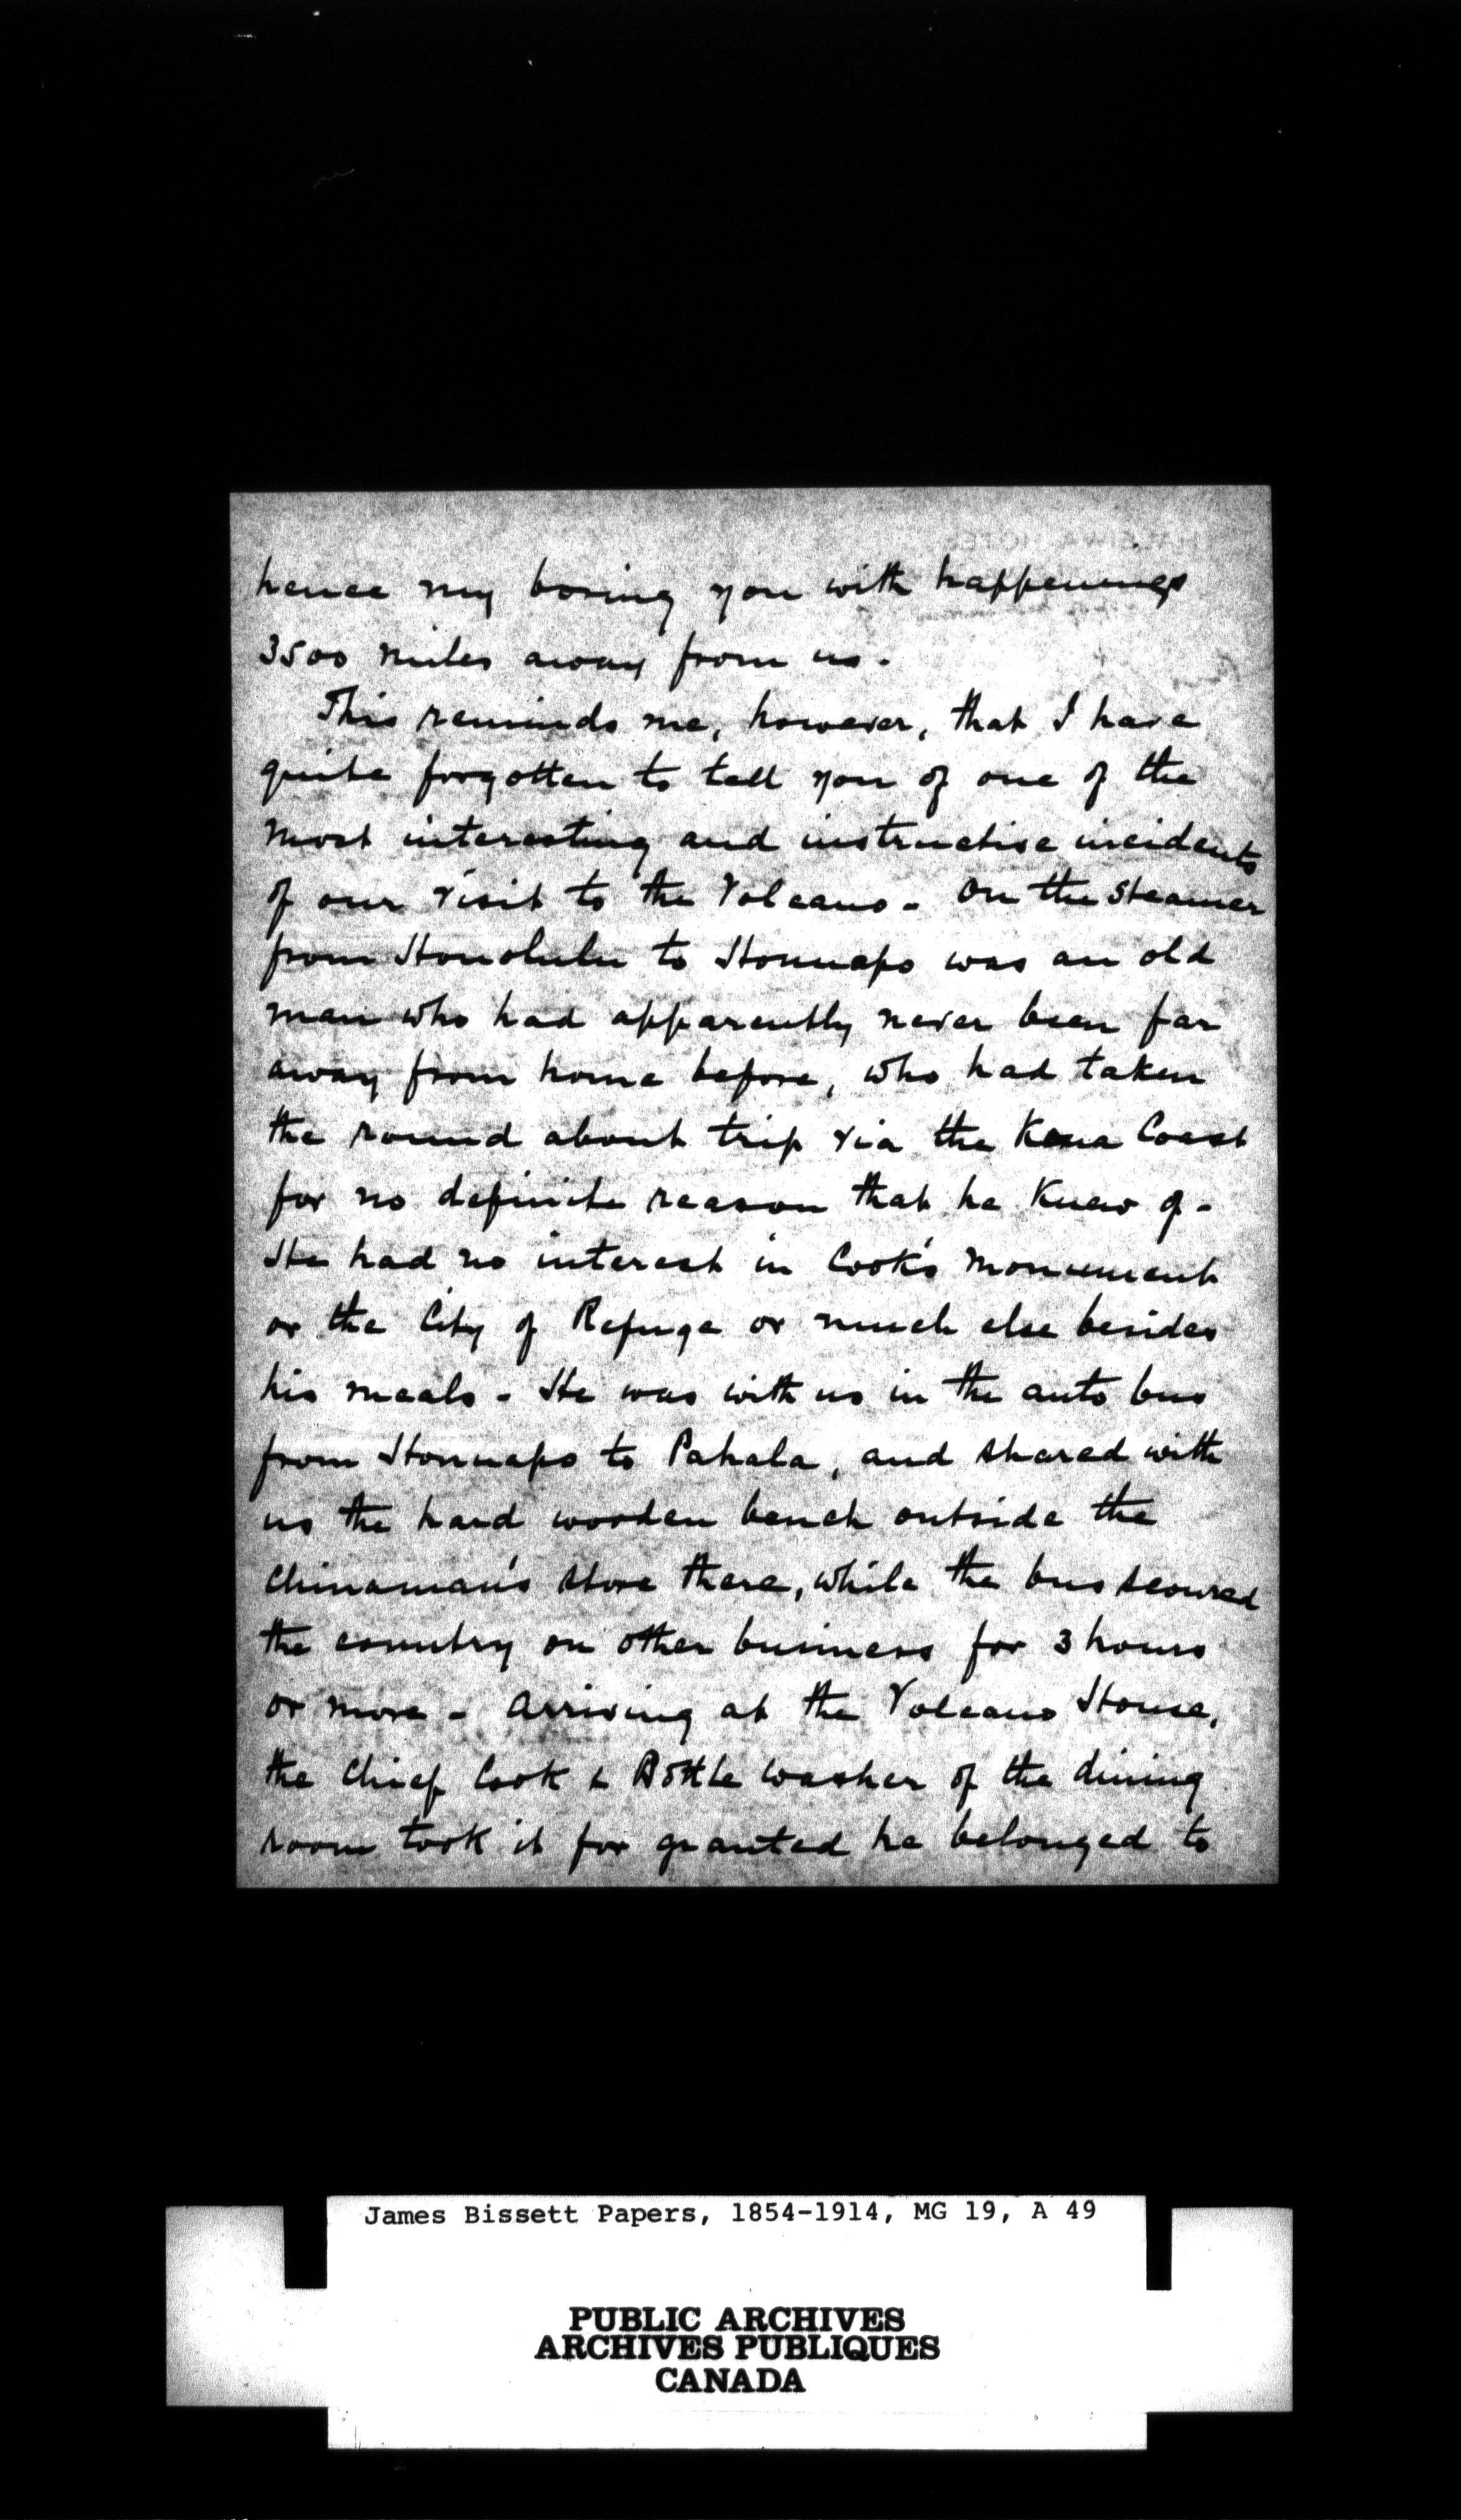 hence my boring you with happenings
3500 miles away from us.
This reminds me, however, that I have
quite forgotten to tell you of one of the
most interesting and instructive incidents
of our visit to the Volcano. On the steamer
from Honolulu to Honuapo was an old
man who had apparently never been far
away from home before, who had taken
the round about trip via the Kona Coast
for no definite reason that he knew of.
He had no interest in Cook's monument
or the City of Refuge or much else besides
his meals. He was with us in the auto bus
from Honuapo to Pahala, and shared with
us the hard wooden bench outside the
Chinaman's store there, while the bus scoured
the country on other business for 3 hours
or more. Arriving at the Volcano House,
the Chief Cook & Bottle washer of the dining
room took it for granted he belonged to
James Bissett Papers, 1854-1914, MG 19, A 49
PUBLIC ARCHIVES
ARCHIVES PUBLIQUES
CANADA